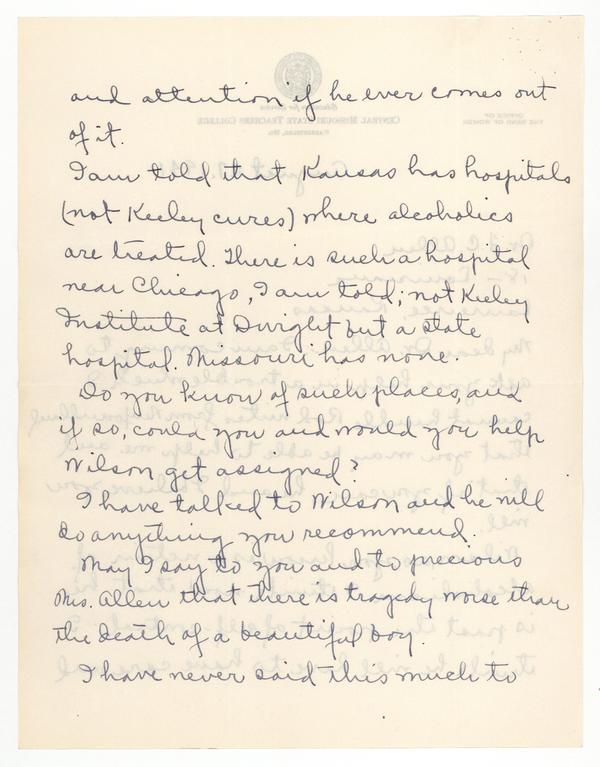 and attention if he ever comes out
of it.
I am told that Kansas has hospitals
(not Keeley cures) where alcoholics
are treated. There is such a hospital
near Chicago, I am told; not Keeley
Institute at Dwight but a state
hospital. Missouri has none.
Do you know of such places, and
if so, could you and would you help
Wilson get assigned?
I have talked to Wilson and he will
do anything you recommend.
May I say to you and to precious
Mrs. Allen that there is tragedy worse than
the death of a beautiful boy.
I have never said this much to